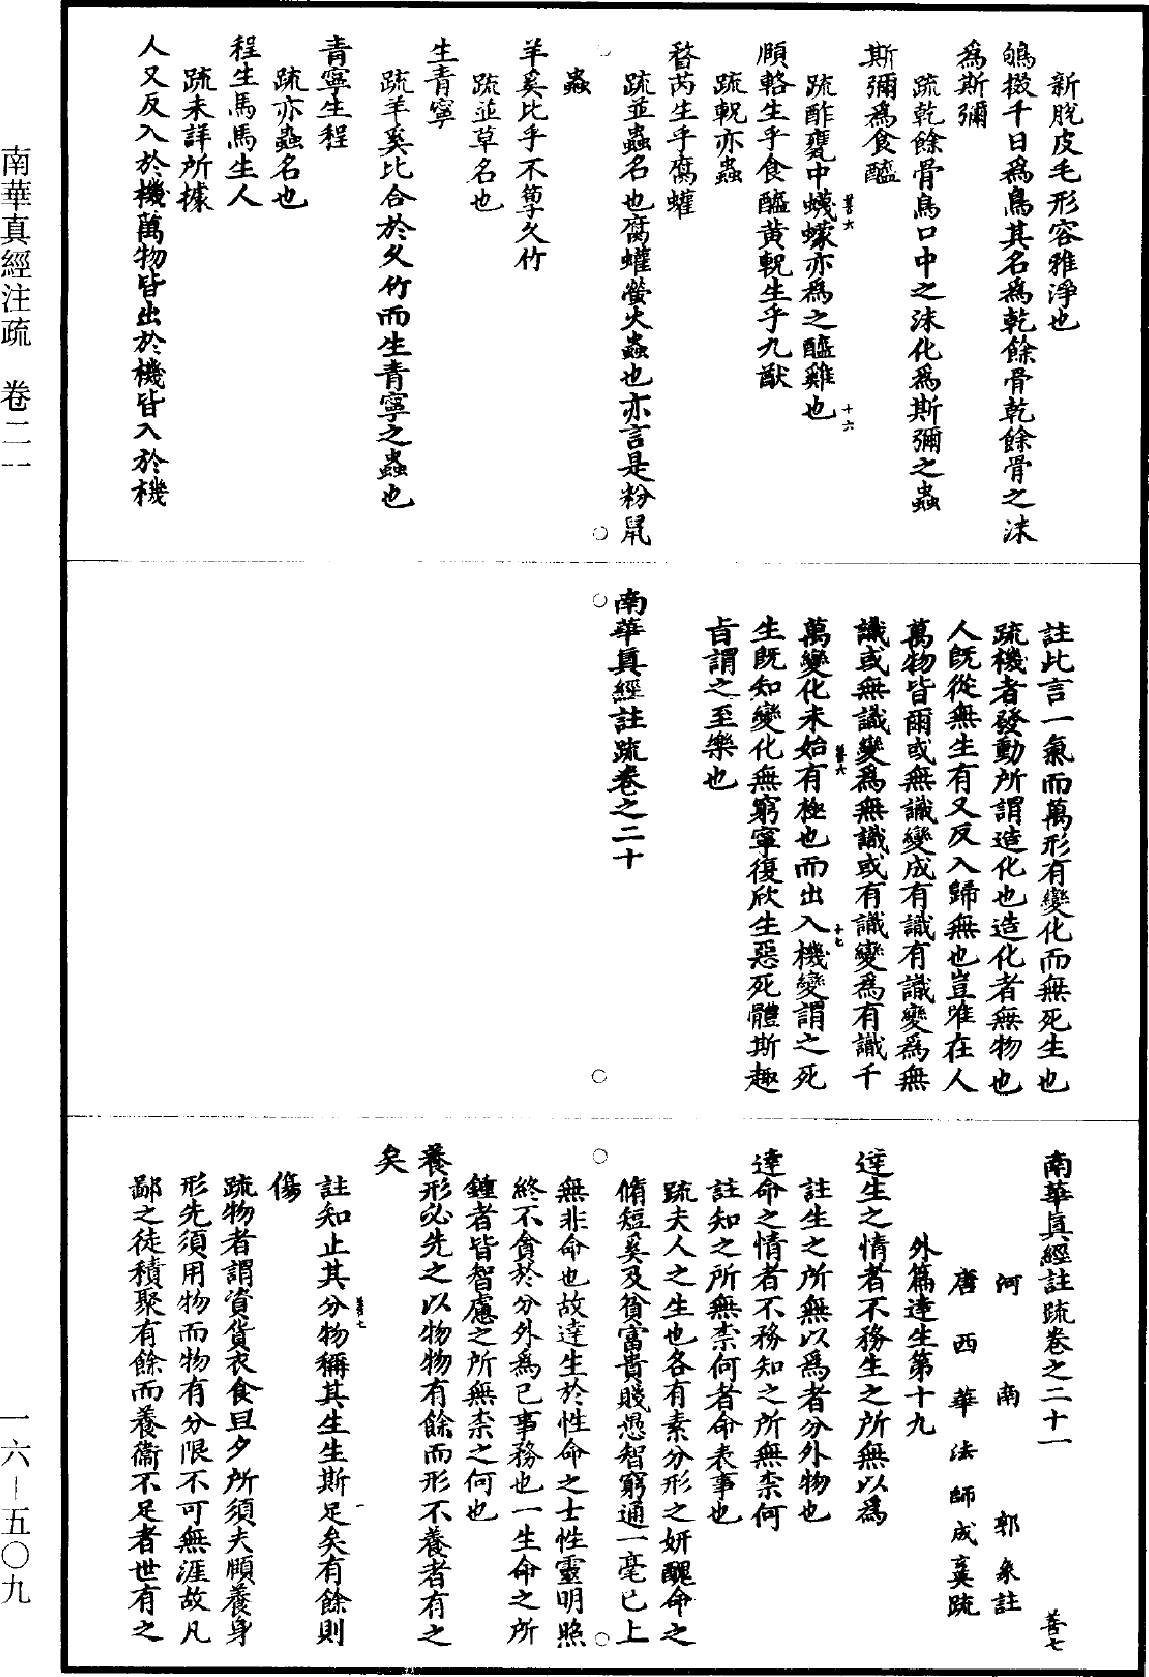 新脫皮毛形容雅淨也
鴝掇千日爲鳥其名爲乾餘骨乾餘骨之沫
爲斯彌
疏乾餘骨鳥口中之沫化爲斯彌之蟲
斯彌爲食醯
疏酢甕中蠛蠓亦爲之醯雞也
善六
十六
頤輅生乎食醯黃軦生乎九猷
疏軦亦蟲
瞀芮生乎腐蠸
疏並蟲名也腐蠸螢火蟲也亦言是粉鼠
蟲
羊奚比乎不箰久竹
疏並草名也
生青寧
疏羊奚比合於久竹而生青寧之蟲也
青寧生程
疏亦蟲名也
程生馬馬生人
疏未詳所據
人又反入於機萬物皆出於機皆入於機
註此言一氣而萬形有變化而無死生也
疏機者發動所謂造化也造化者無物也
人既從無生有又反入歸無也豈唯在人
萬物皆爾或無識變成有識有識變爲無
識或無識變爲無識或有識變爲有識千
萬變化未始有極也而出入機變謂之死
善六
十七
生既知變化無窮寧復欣生惡死體斯趣
旨謂之至樂也
南華真經註疏卷之二十
南華真經註疏卷之二十一
善七
河南郭象註
唐西華法師成玄英疏
外篇達生第十九
達生之情者不務生之所無以爲
註生之所無以爲者分外物也
達命之情者不務知之所無柰何
註知之所無柰何者命表事也
疏夫人之生也各有素分形之妍醜命之
脩短奚及貧富貴賤愚智窮通一毫已上
無非命也故達生於性命之士性靈明照
終不貪於分外爲已事務也一生命之所
鍾者皆智慮之所無柰之何也
養形必先之以物物有餘而形不養者有之
矣
註知止其分物稱其生生斯足矣有餘則
善七
一
傷
疏物者謂資貨衣食旦夕所須夫頤養身
形先須用物而物有分限不可無涯故凡
鄙之徒積聚有餘而養衞不足者世有之
南華真經注疏　卷二一
一六—五〇九